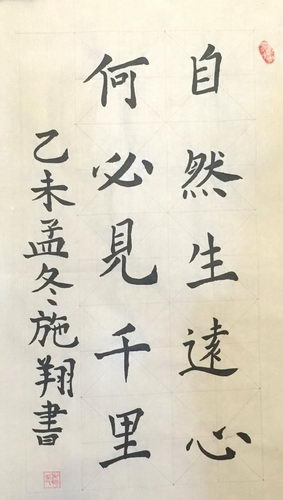 自然生遠心
何必見千里
乙未孟冬施翔書